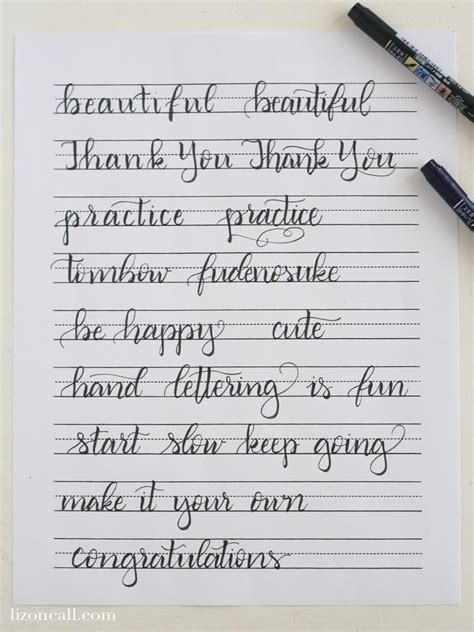 beautiful beautiful
Thank You Thank You
practice practice
tombow fudenosuke
be happy cute
hand lettering is fun
start slow keep going
make it your own
congratulations
lizoncall.com